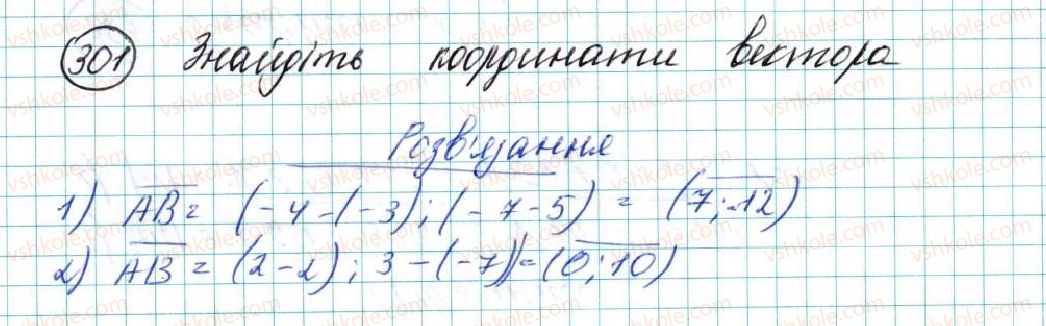 301 Знайдіть координати вектора
Розв'язання
1) AB = (-4-(-3); (-7-5) = (7; -12)
2) AB = (2-2); 3-(-7)) = (0; 10)